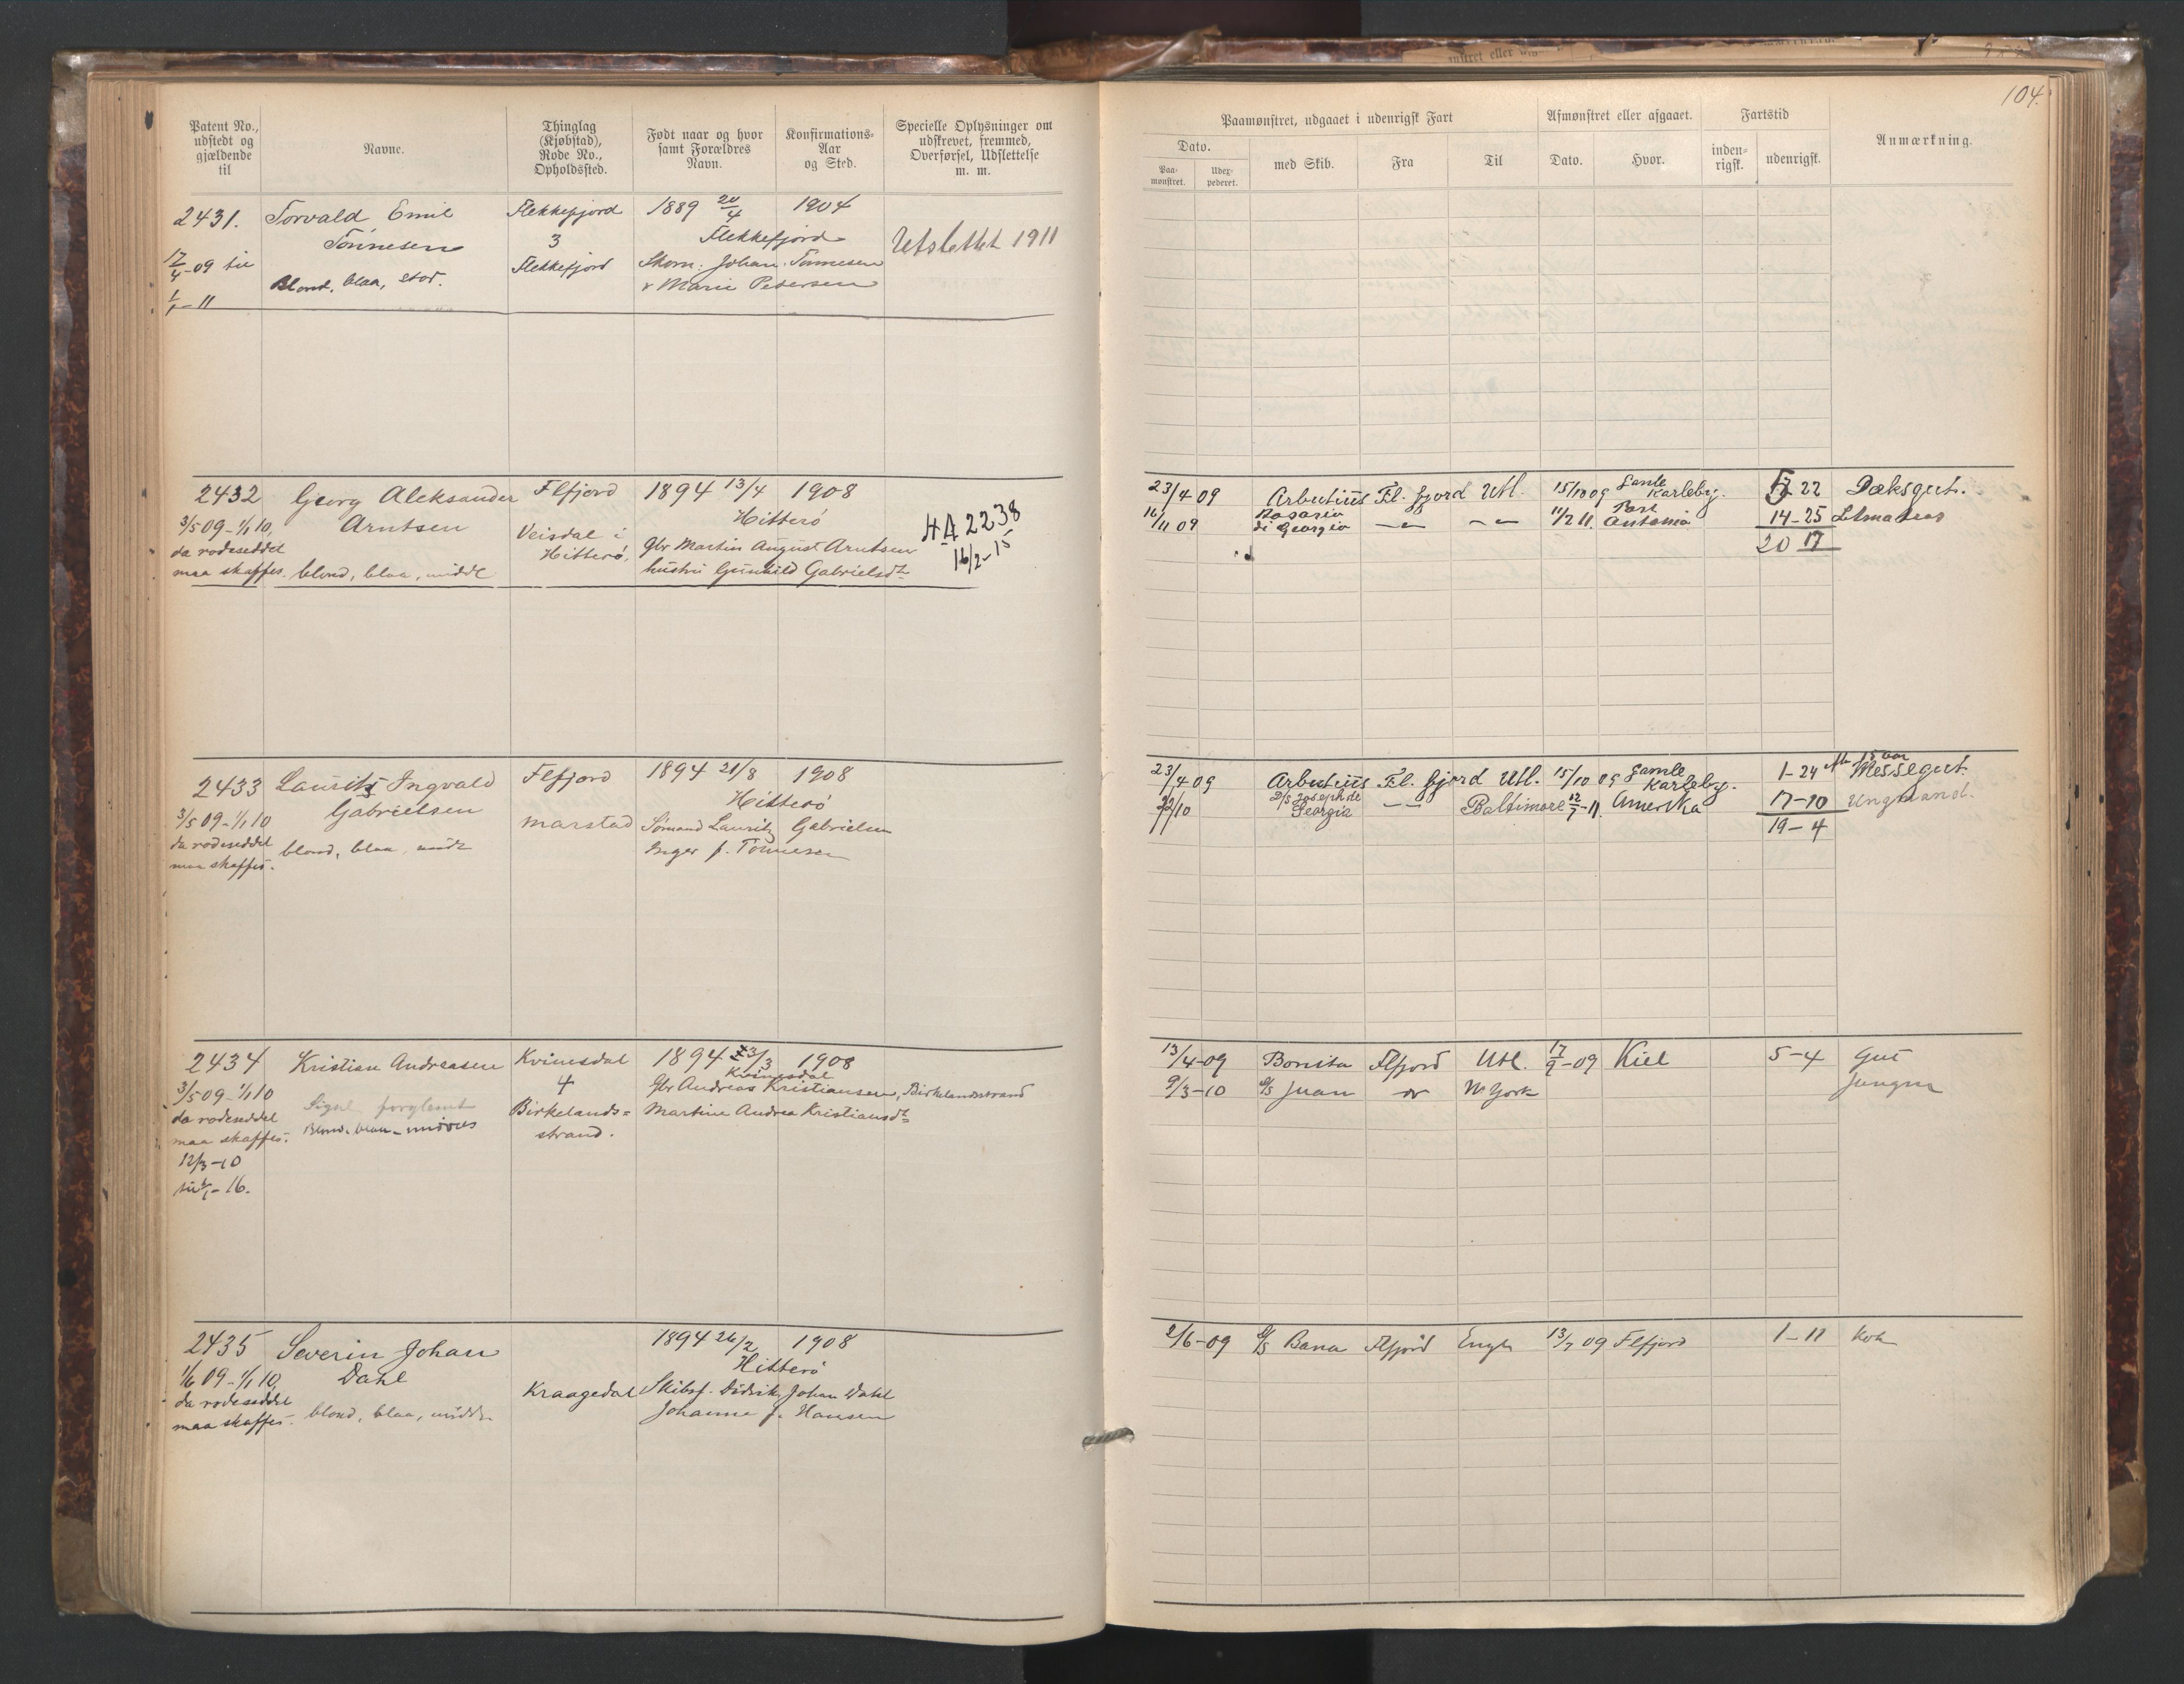 104.
Patent No., udstedt og gjældende til
Navne.
Thinglag (Kjøbstad), Rode No., Opholdssted.
Født naar og hvor samt Forældres Navn.
Konfirmations-Aar og Sted.
Specielle Oplysninger om udskrevet, fremmed, Overførsel, Udslettelse m. m.
Paamønstret, udgaaet i udenrigsk Fart
Dato.
Paa-mønstret.
Udex-pederet.
med Skib.
Fra
Til
Afmønstret eller afgaaet.
Dato.
Hvor.
Fartstid
inden-rigsk.
udenrigsk.
Anmærkning.
2431. Torvald Emil Flekkefjord 1889 20/4 1904
Tønnesen 3 Flekkefjord Utslettet 1911
17/4-09 til Flekkefjord Johan Tønnesen
Blond, blaa, stor. Marie Petersen
1/1-11
2432 Georg Aleksander Flfjord 1894 13/4 1908
3/5 09-1/1 10, Arntsen Veisdal i Hitterø HA 2238
da rodeseddel Hitterø, Gbr Martin August Arntsen 16/2-15
maa skaffes. blond, blaa, middl hustru Gunhild Gabrielsdt
23/4 09 Arbutius Fl.fjord Utl. 15/10 09 Gamle Karleby. 22 Dæksgut.
16/11 09 Rosario di Georgio 11/2 11 Port Antonio 14-25
20 17
2433 Laurits Ingvald Flfjord 1894 21/8 1908
3/5 09-1/1 10 Gabrielsen Hitterø
da rodeseddel marstad Sømand Lauritz Gabrielsen
maa skaffes. blond, blaa, midd Inger f. Tønnesen
23/4 09 Arbutius Fl.fjord Utl. 15/10 09 Gamle Karleby. 1-24 Messegut.
D/S Joseph di Georgia Baltimore 12/7-11. Amerika 17-10 Ungmand.
19-4
2434 Kristian Andreasen Kvinesdal 1894 3/3 1908
3/5 09-1/1 10 4 Kvinesdal
Gbr Andreas Kristiansen, Birkelandsstrand
da rodeseddel Birkelands= Martine Andrea Kristiansdt
maa skaffes. Blond-blaa-middels strand.
12/3-10
til 1/1-16.
13/4-09 Bonita Flfjord Utl. 17/9-09 Kiel 5-4 Gut
9/3-10 Juan N. York Jungm
2435 Severin Johan 1894 26/2 1908
1/6 09-1/1 10, Dahl Hitterø
da rodeseddel Kraagedal Skibsf. Didrik Johan Dahl
maa skaffes. blond, blaa, midd. Johanne f. Hansen
2/6-09 Bana Flfjord Engl 13/7 09 Flfjord 1-11 Kok